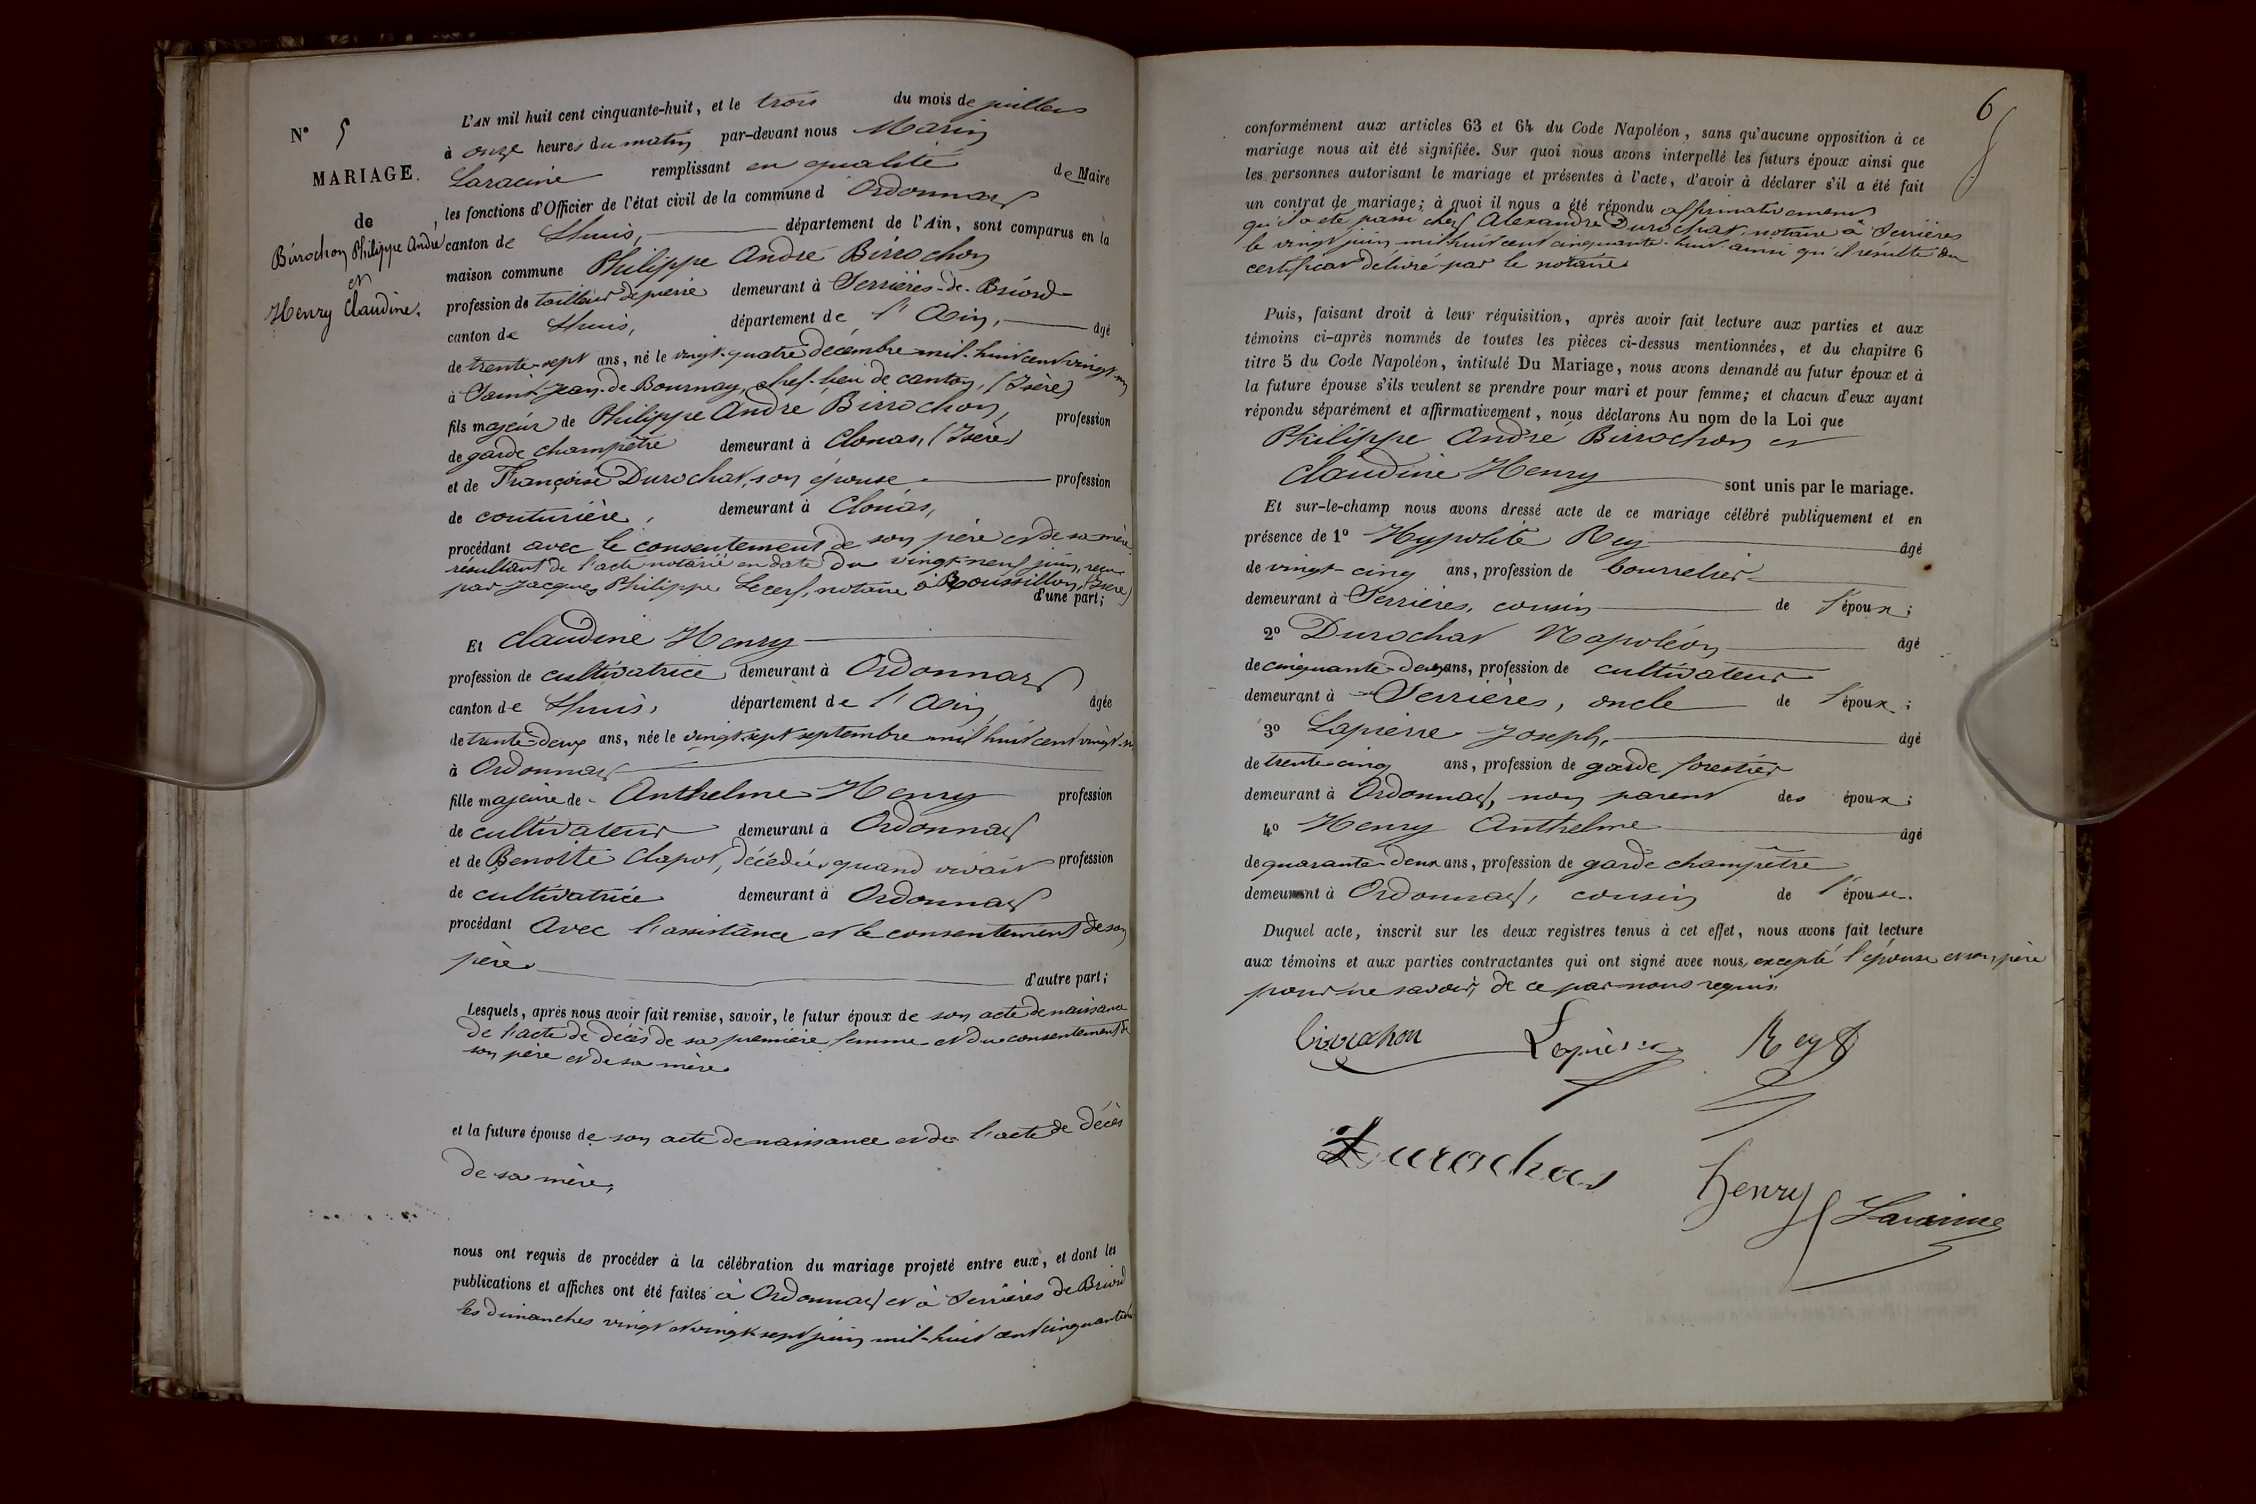 N° 5
MARIAGE.
de
Birrochon Philippe André
et
Henry Claudine.
L'AN mil huit cent cinquante-huit, et le trois du mois de juillet
à onze heures du matin par-devant nous Marin
Laracine remplissant en qualité de Maire
les fonctions d'Officier de l'état civil de la commune d Ordonnas
canton de Lhuis, département de l'Ain, sont comparus en la
maison commune Philippe André Birrochon
profession de tailleur de pierre demeurant à Serrières-de-Briord
canton de Lhuis, département de l'Ain, âgé
de trente-sept ans, né le vingt-quatre décembre mil-huit cent vingt-un
à Saint Jean-de-Bournay, chef-lieu de canton, (Isère)
fils majeur de Philippe André Birrochon, profession
de garde champêtre demeurant à Clonas, (Isère)
et de Françoise Durochat, son épouse profession
de couturière, demeurant à Clonas,
procédant avec le consentement de son père et de sa mère
résultant de l'acte notarié en date du vingt-neuf juin, reçu
par Jacques Philippe Lecerf, notaire à Roussillon, (Isère)
d'une part;
Et Claudine Henry
profession de cultivatrice demeurant à Ordonnas
canton de Lhuis, département de l'Ain, âgée
de trente-deux ans, née le vingt-sept septembre mil huit cent vingt-six
à Ordonnas
fille majeure de Anthelme Henry profession
de cultivateur demeurant à Ordonnas
et de Benoite Clapot, décédée, quand vivait profession
de cultivatrice demeurant à Ordonnas
procédant Avec l'assistance et le consentement de son
père d'autre part;
Lesquels, après nous avoir fait remise, savoir, le futur époux de son acte de naissance
de l'acte de décès de sa première femme et du consentement de
son père et de sa mère
et la future épouse de son acte de naissance et de l'acte de décès
de sa mère,
nous ont requis de procéder à la célébration du mariage projeté entre eux, et dont les
publications et affiches ont été faites à Ordonnas et à Serrières de Briord
les dimanches vingt et vingt-sept juin mil-huit cent cinquante-huit
6
conformément aux articles 63 et 64 du Code Napoléon, sans qu'aucune opposition à ce
mariage nous ait été signifiée. Sur quoi nous avons interpellé les futurs époux ainsi que
les personnes autorisant le mariage et présentes à l'acte, d'avoir à déclarer s'il a été fait
un contrat de mariage; à quoi il nous a été répondu affirmativement
qu'il a été passé chez Alexandre Durochat notaire à Serrières
le vingt juin mil huit cent cinquante-huit ainsi qu'il résulte du
certificat délivré par le notaire
Puis, faisant droit à leur réquisition, après avoir fait lecture aux parties et aux
témoins ci-après nommés de toutes les pièces ci-dessus mentionnées, et du chapitre 6
titre 5 du Code Napoléon, intitulé Du Mariage, nous avons demandé au futur époux et à
la future épouse s'ils veulent se prendre pour mari et pour femme; et chacun d'eux ayant
répondu séparément et affirmativement, nous déclarons Au nom de la Loi que
Philippe André Birrochon et
Claudine Henry sont unis par le mariage.
Et sur-le-champ nous avons dressé acte de ce mariage célébré publiquement et en
présence de 1° Hypolite Rey âgé
de vingt-cinq ans, profession de bourrelier
demeurant à Serrières, cousin de l'époux;
2° Durochat Napoléon âgé
de cinquante-deux ans, profession de cultivateur
demeurant à Serrières, oncle de l'époux;
3° Lapierre Joseph, âgé
de trente-cinq ans, profession de garde forestier
demeurant à Ordonnas, non parent des époux;
4° Henry Anthelme âgé
de quarante-deux ans, profession de garde champêtre
demeurant à Ordonnas, cousin de l'épouse.
Duquel acte, inscrit sur les deux registres tenus à cet effet, nous avons fait lecture
aux témoins et aux parties contractantes qui ont signé avec nous, excepté l'épouse et son père
pour ne savoir, de ce par nous requis
birrahon Lapierre Rey
Durochat
henry Laracine